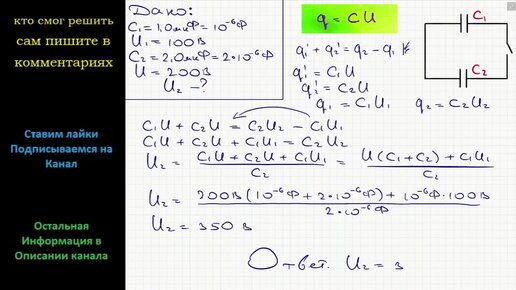 кто смог решить
сам пишите в
комментариях
Ставим лайки
Подписываемся на
Канал
Остальная
Информация в
Описании канала
Дано:
C₁ = 1,0 мкФ = 10⁻⁶Ф
U₁ = 100В
C₂ = 2,0мкФ = 2·10⁻⁶Ф
U = 200В
U₂ - ?
q = CU
q₁' + q₂' = q₂ - q₁
q₁' = C₁U
q₂' = C₂U
q₁ = C₁U₁ q₂ = C₂U₂
C₁
C₂
C₁U + C₂U = C₂U₂ - C₁U₁
C₁U + C₂U + C₁U₁ = C₂U₂
U₂ = (C₁U + C₂U + C₁U₁) / C₂ = (U(C₁ + C₂) + C₁U₁) / C₂
U₂ = (200В(10⁻⁶Ф + 2·10⁻⁶Ф) + 10⁻⁶Ф·100В) / 2·10⁻⁶Ф
U₂ = 350В
Ответ: U₂ = 3